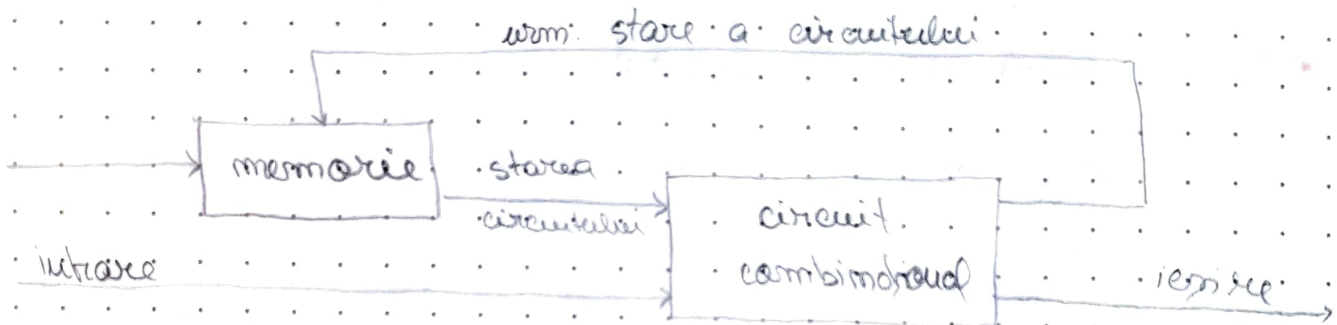 urm. stare a circuitului
memorie
starea
circuitului
circuit
combinațional
intrare
ieșire